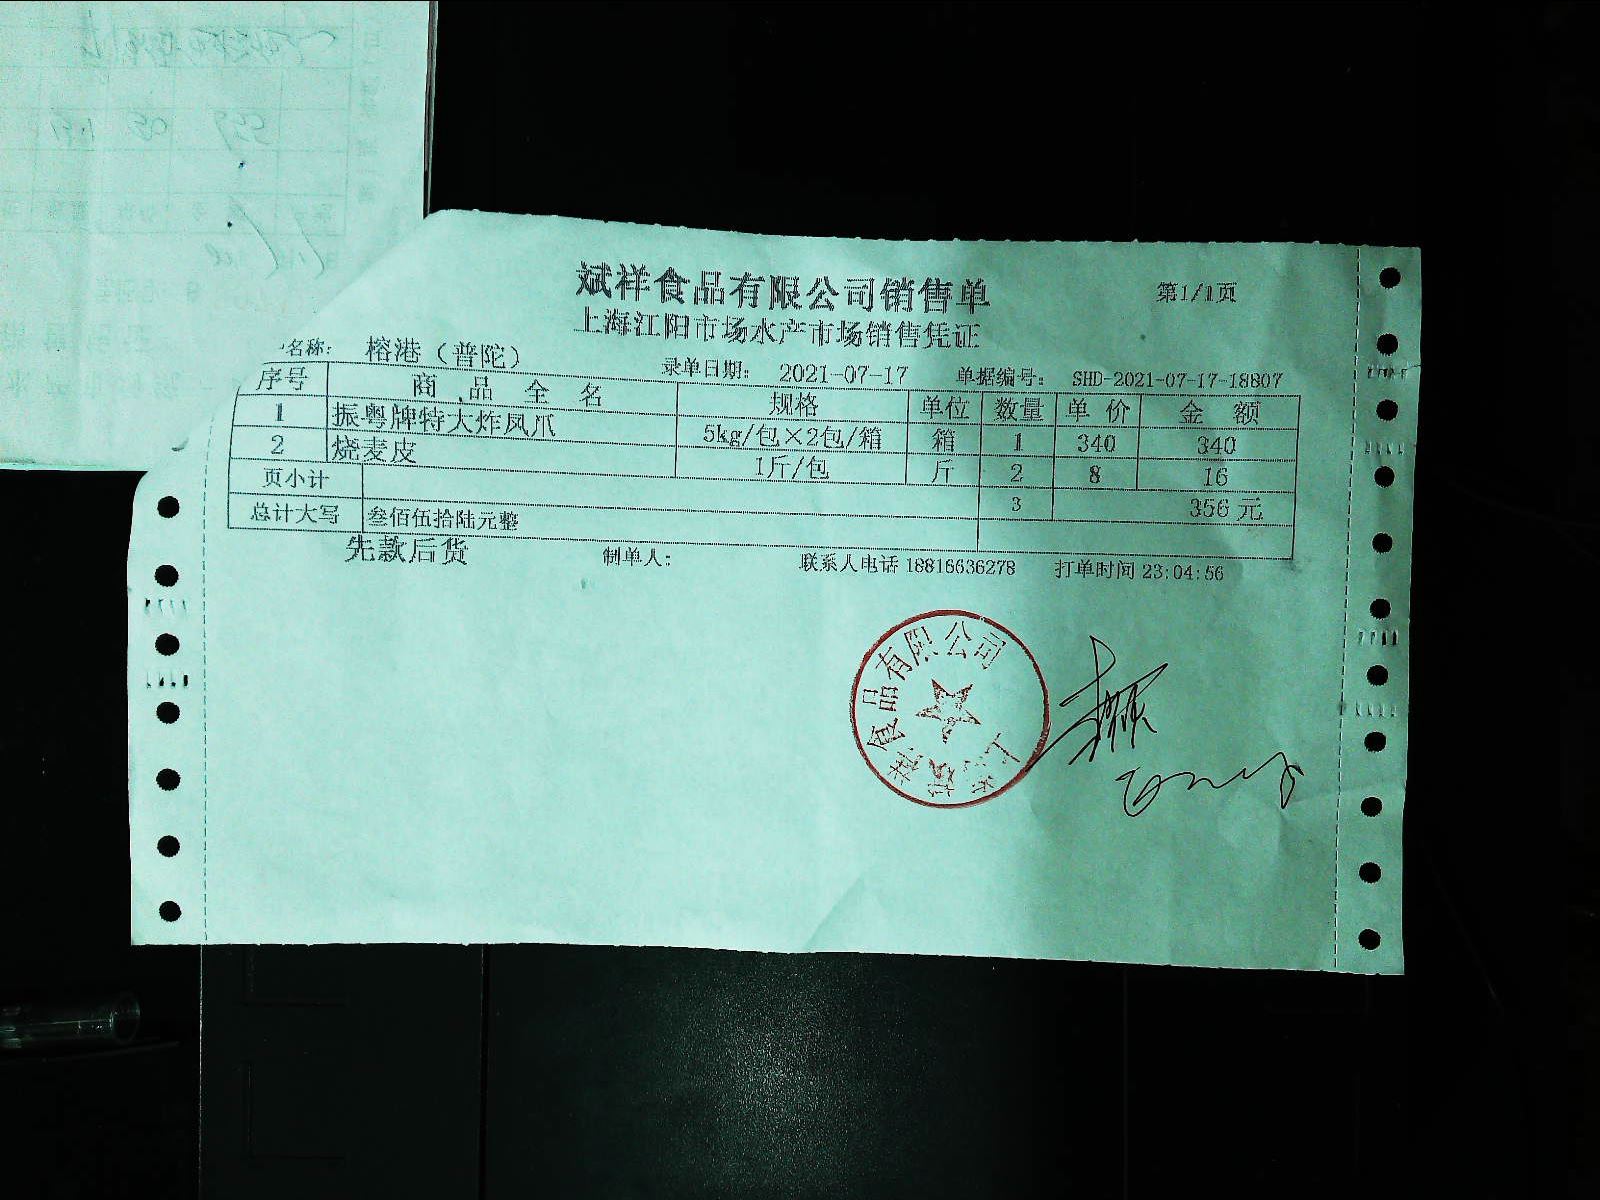 斌祥食品有限公司销售单
第1/1页
上海江阳市场水产市场销售凭证
名称： 榕港（普陀） 录单日期： 2021-07-17 单据编号： SHD-2021-07-17-18807
序号 商品全名 规格 单位 数量 单价 金额
1 振粤牌特大炸凤爪 5kg/包×2包/箱 箱 1 340 340
2 烧麦皮 1斤/包 斤 2 8 16
页小计 3 356元
总计大写 叁佰伍拾陆元整
先款后货 制单人： 联系人电话 18816636278 打单时间 23:04:56
上海斌祥食品有限公司